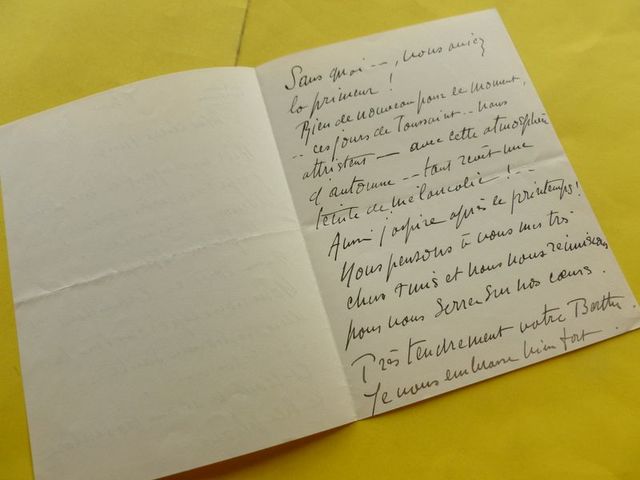 Sans quoi --, vous auriez
la primeur !
Rien de nouveau pour le moment,
-- ces jours de Toussaint -- nous
attristent — avec cette atmosphère
d'automne -- tout revêt une
teinte de mélancolie ! --
Aussi j'aspire après le printemps !
Nous pensons à vous mes très
chers amis et nous nous réunissons
pour vous serrer sur nos cœurs.
Très tendrement votre Berthe.
Je vous embrasse bien fort.